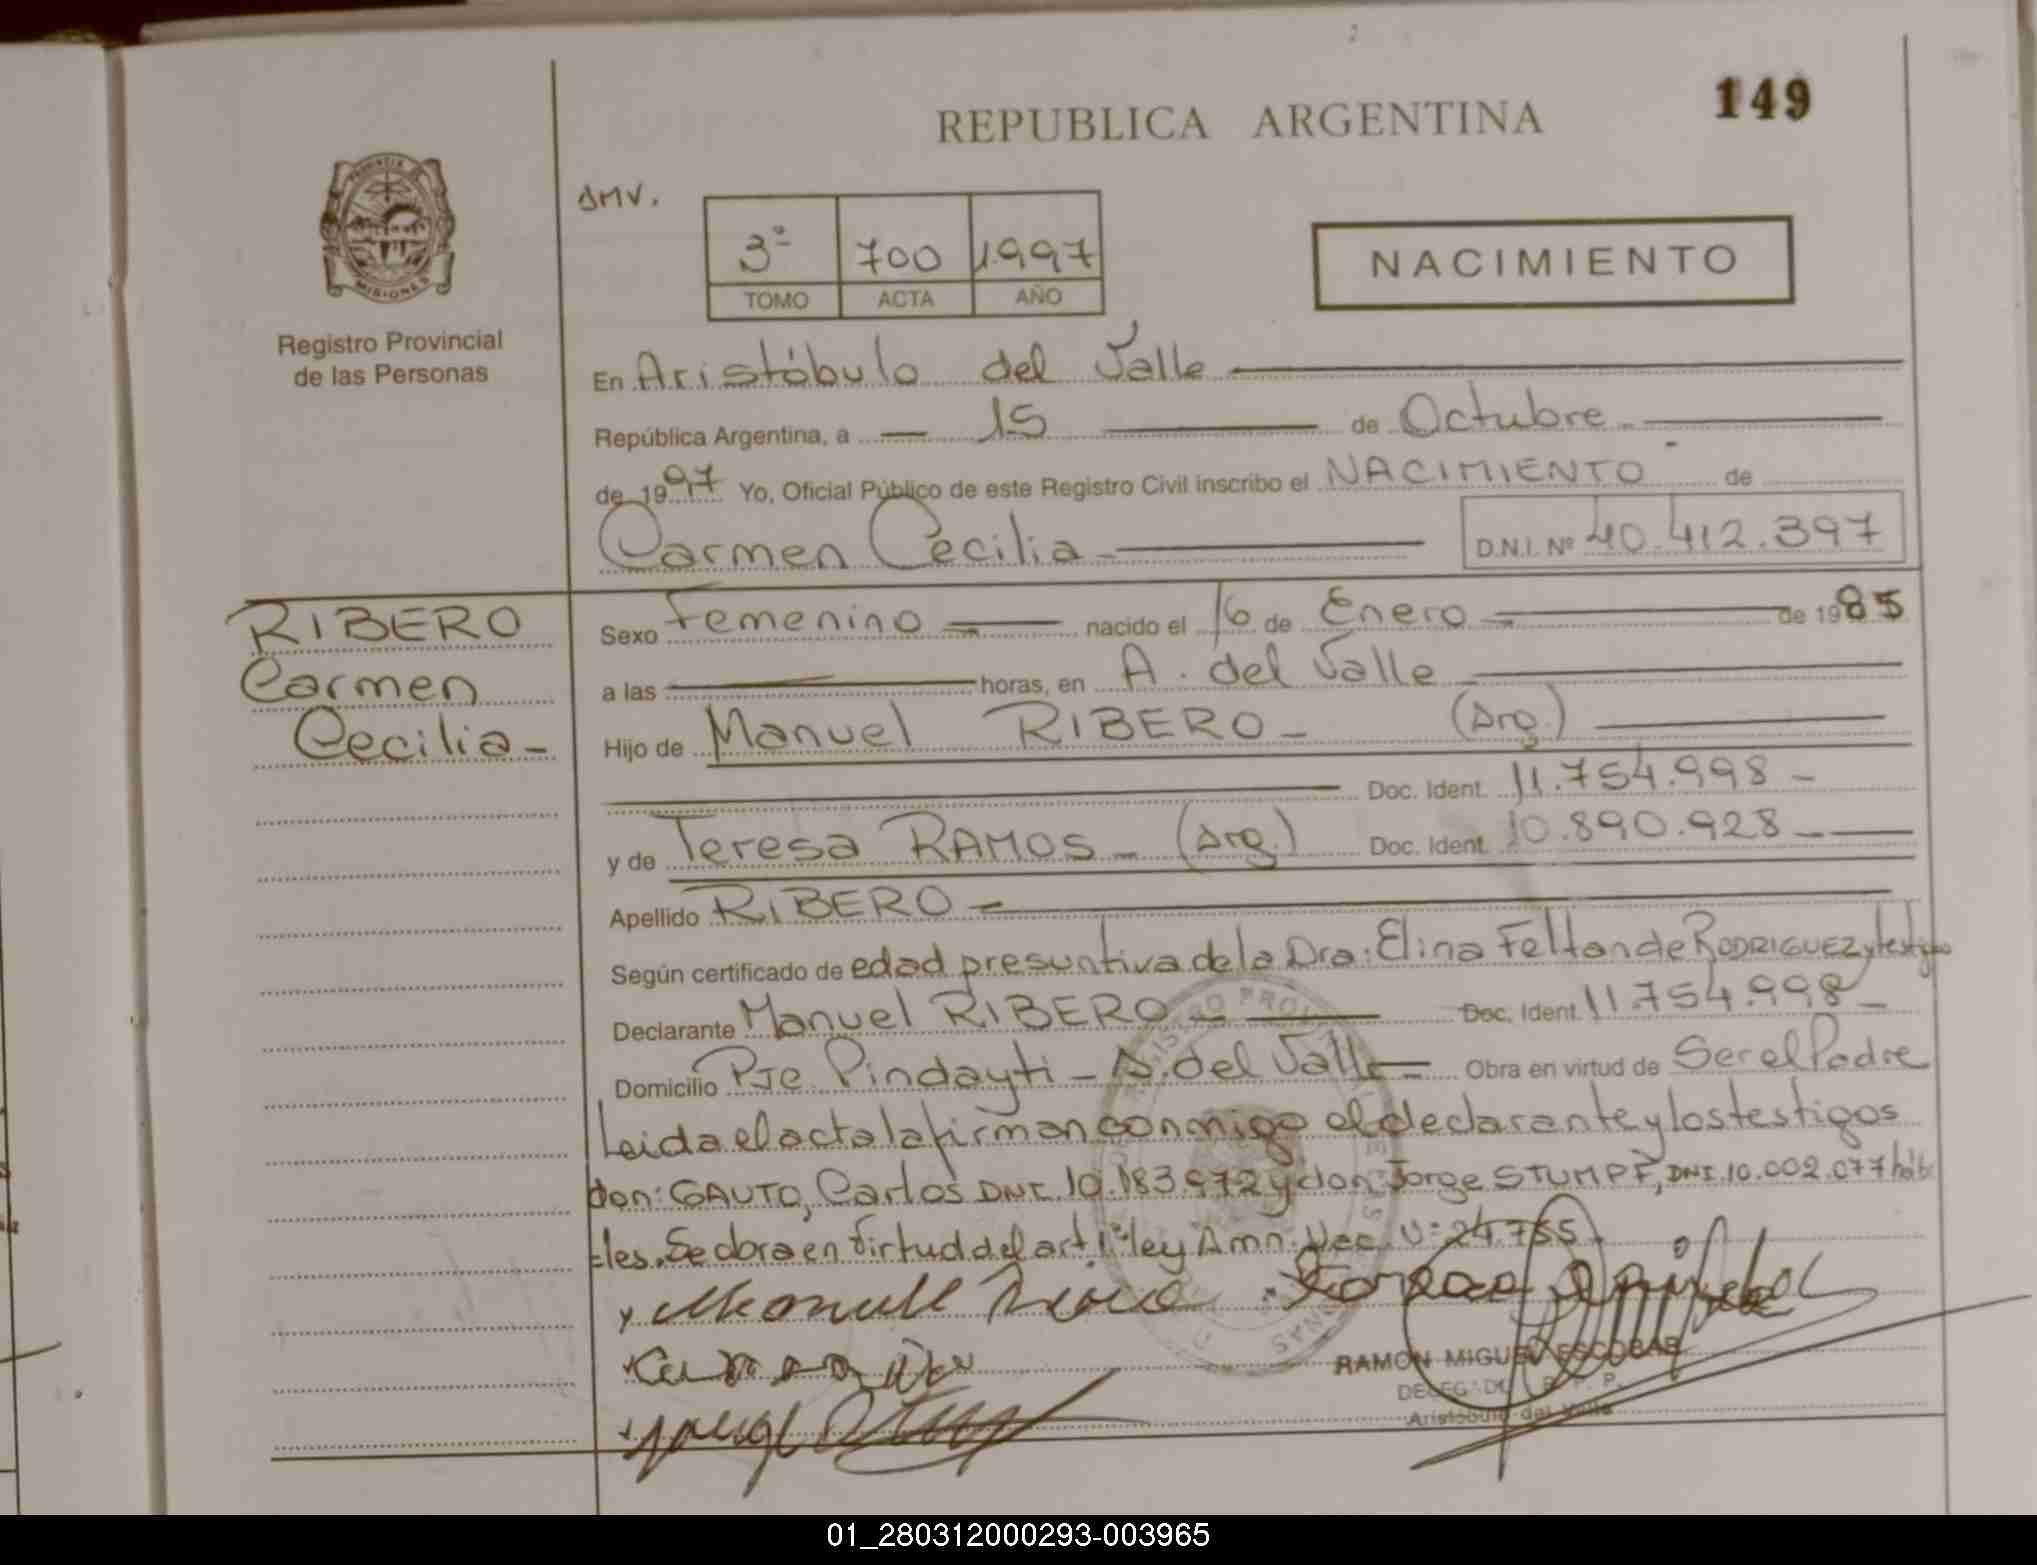 REPUBLICA ARGENTINA
149
PROVINCIA DE
MISIONES
Registro Provincial
de las Personas
AMV.
3º 700 1.997
TOMO ACTA AÑO
NACIMIENTO
En Aristóbulo del Valle
República Argentina, a 15 de Octubre
de 1997 Yo, Oficial Público de este Registro Civil inscribo el NACIMIENTO de
Carmen Cecilia D.N.I. Nº 40.412.397
RIBERO
Carmen
Cecilia
Sexo Femenino nacido el 16 de Enero de 1985
a las horas, en A. del Valle
Hijo de Manuel RIBERO (Arg.)
Doc. Ident. 11.754.998
y de Teresa RAMOS (Arg.) Doc. Ident. 10.890.928
Apellido RIBERO
Según certificado de edad presuntiva de la Dra: Elina Feltan de RODRIGUEZ y testigos
Declarante Manuel RIBERO Doc. Ident. 11.754.998
Domicilio Pje Pindayti - A. del Valle Obra en virtud de Ser el Padre
Leida el acta la firman conmigo el declarante y los testigos
don: GAUTO, Carlos DNI. 10.183.972 y don Jorge STUMPF, DNI. 10.002.077 hábi
les. Se obra en virtud del art 1º ley Amn. Nac. Nº 24.755
RAMON MIGUEL ESCOBAR
DELEGADO R. P. P.
Aristobulo del Valle
01_280312000293-003965